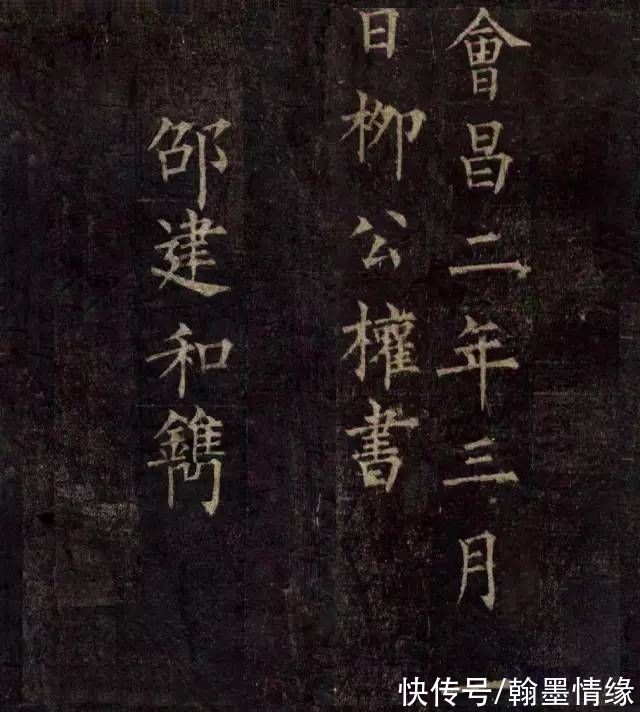 會昌二年三月一
日柳公權書
邵建和鐫
快传号/翰墨情缘